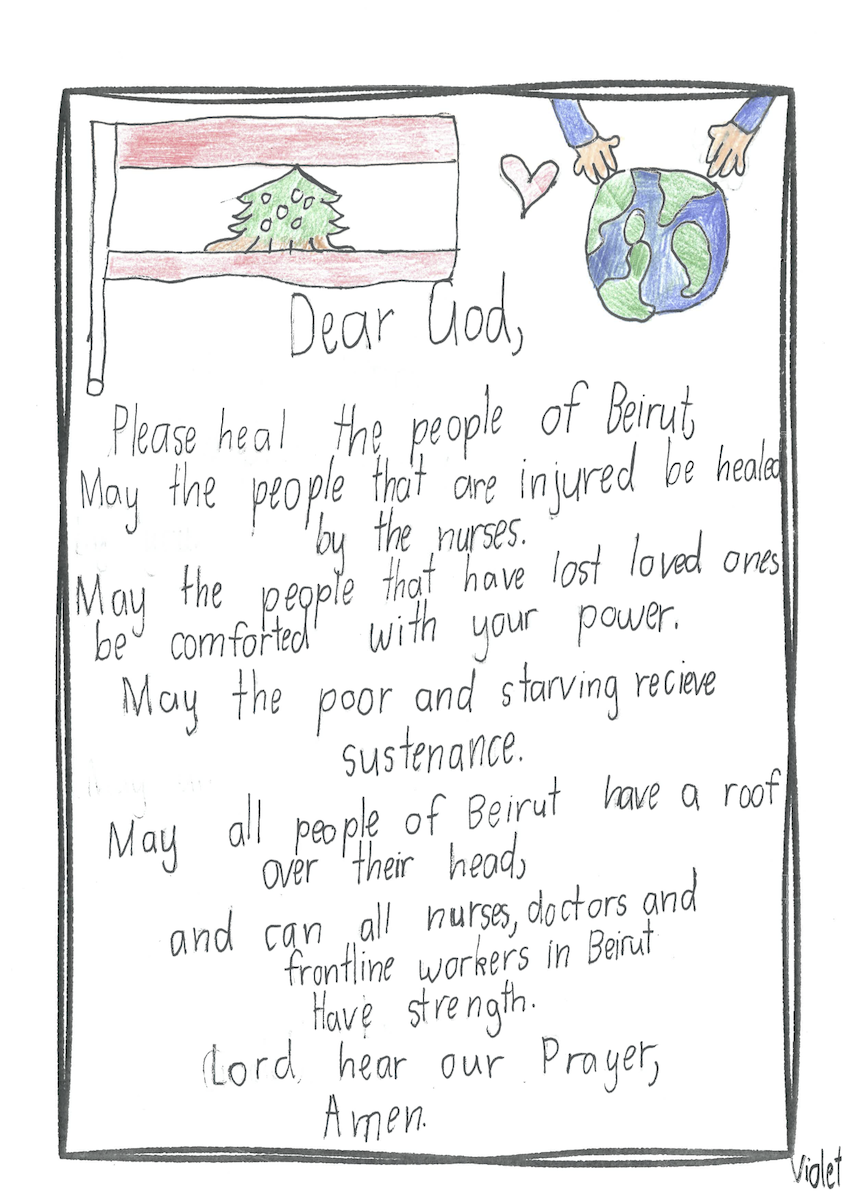 Dear God,
Please heal the people of Beirut,
May the people that are injured be healed
by the nurses.
May the people that have lost loved ones
be comforted with your power.
May the poor and starving recieve
sustenance.
May all people of Beirut have a roof
over their head,
and can all nurses, doctors and
frontline workers in Beirut
Have strength.
Lord hear our Prayer,
Amen.
Violet